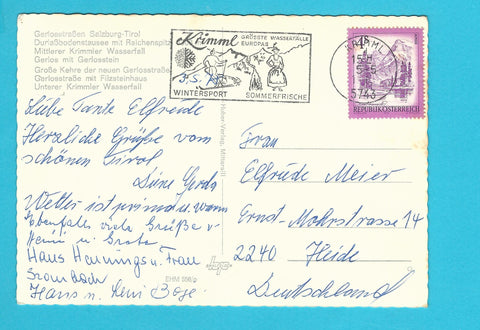 Gerlosstraßen Salzburg-Tirol
Durlaßbodenstausee mit Reichenspitz
Mittlerer Krimmler Wasserfall
Gerlos mit Gerlosstein
Große Kehre der neuen Gerlosstraße
Gerlosstraße mit Filzsteinhaus
Unterer Krimmler Wasserfall
Krimml
GRÖSSTE WASSERFÄLLE
EUROPAS
WINTERSPORT
SOMMERFRISCHE
KRIMML
5743
REPUBLIK ÖSTERREICH
Liebe Tante Elfriede
Herzliche Grüße vom
schönen Tirol
Deine Gerda
Wetter ist prima u. warm
Ebenfalls viele Grüße v
Heini u. Grete
Haus Hennings u. Frau
Hans u. Leni Boje
EHM
Frau
Elfriede Meier
Ernst-Mohrstrasse 14
2240 Heide
Deutschland